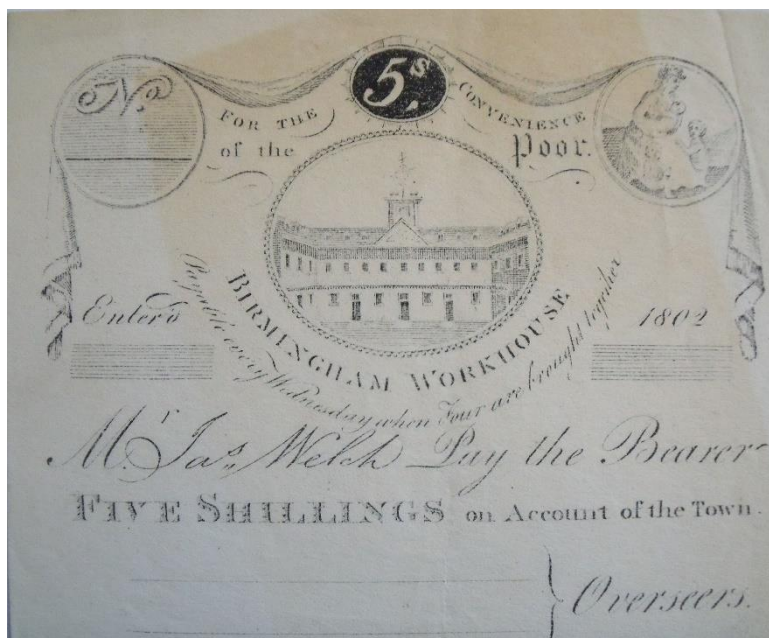 5s
No.
FOR THE CONVENIENCE
of the Poor.
BIRMINGHAM WORKHOUSE
Payable every Wednesday when Four are brought together
Enterd 1802
Mr. Jas. Welch Pay the Bearer
FIVE SHILLINGS on Account of the Town.
Overseers.